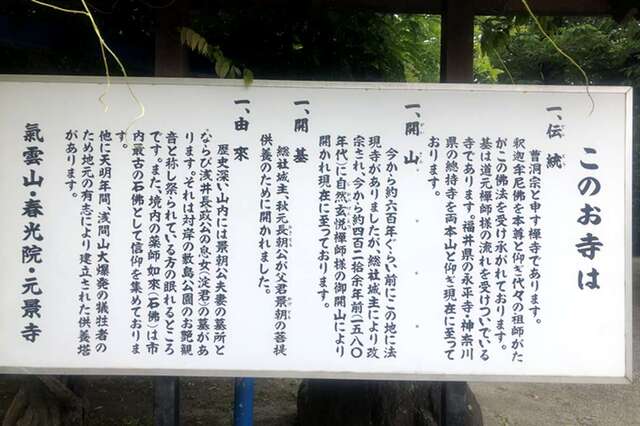 このお寺は
一、伝統
曹洞宗と申す禅寺であります。
釈迦牟尼佛を本尊と仰ぎ代々の祖師がた
がこの佛法を受け承がれております。
基は道元禅師様の流れを受けついでいる
寺であります。福井県の永平寺・神奈川
県の總持寺を両本山と仰ぎ現在に至って
おります。
一、開山
今から約六百年ぐらい前にこの地に法
現寺がありましたが、総社城主により改
宗され、今から約四百二拾余年前(一五八〇
年代)に自然玄悦禅師様の御開山により
開かれ現在に至っております。
一、開基
総社城主、秋元長朝公が父君景朝の菩提
供養のために開かれました。
一、由来
歴史深い山内には景朝公夫妻の墓所と
ならび浅井長政公の息女(淀君)の墓があ
ります。それは対岸の敷島公園のお艶観
音と称し祭られている方の眠れるところ
です。また、境内の薬師如来(石佛)は市
内最古の石佛として信仰を集めておりま
す。
他に天明年間、浅間山大爆発の犠牲者の
ため地元の有志により建立された供養塔
があります。
氣雲山・春光院・元景寺